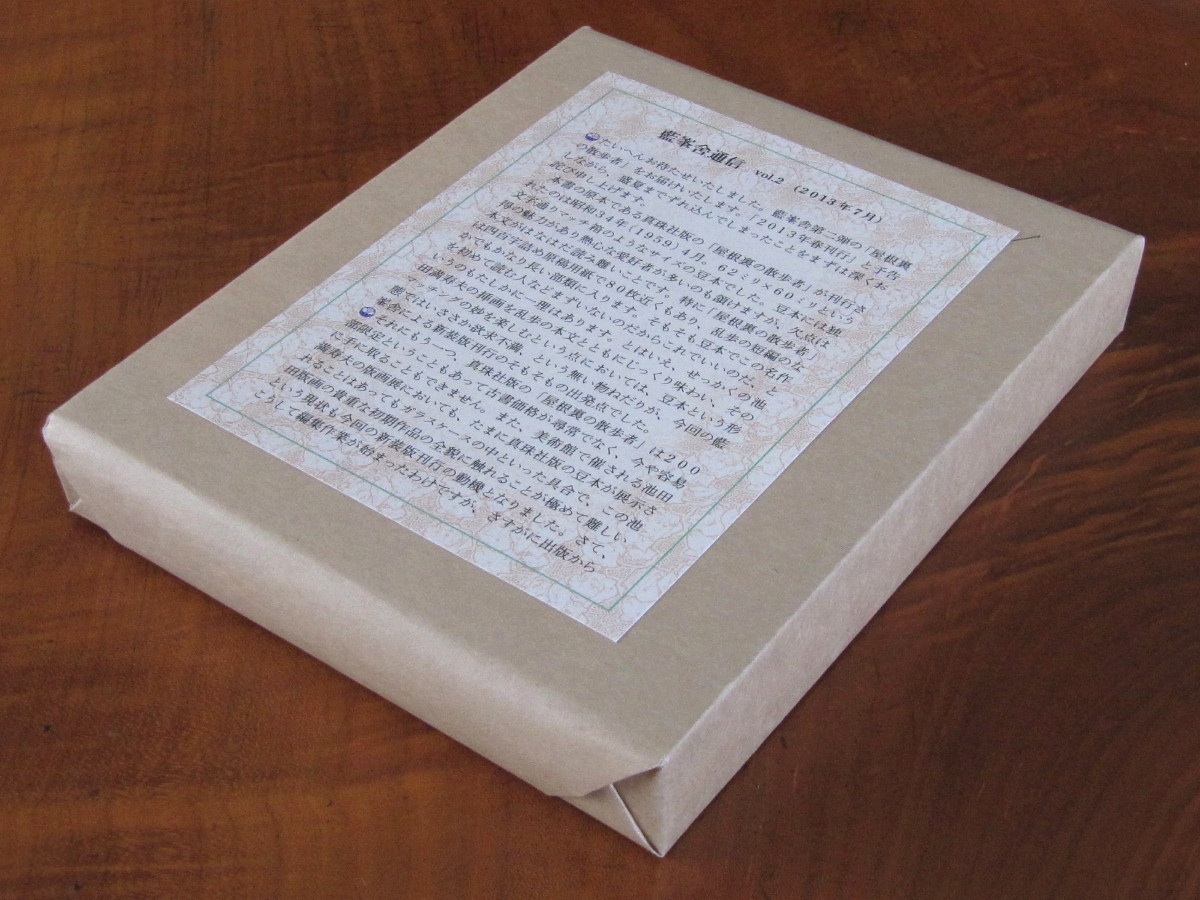 藍峯舎通信 vol.2 (2013年7月)
たいへんお待たせいたしました。藍峯舎第二弾の「屋根裏
の散歩者」をお届けいたします。「2013年春刊行」と予告
しながら、盛夏までずれ込んでしまったことをまずは深くお
詫び申し上げます。
本書の原本である真珠社版の「屋根裏の散歩者」が刊行さ
れたのは昭和34年(1959)4月。62ミリ×60ミリという
文字通りマッチ箱のようなサイズの豆本でした。豆本には独
自の魅力があり熱心な愛好者が多いのも頷けますが、欠点は
本文がはなはだ読み難いことです。特に「屋根裏の散歩者」
は四百字詰め原稿用紙で80枚近くもあり、乱歩の短編のな
かでもかなり長い部類に入ります。そもそも豆本でこの名作
を初めて読む人などまずいないのだからこれでいいのだ、と
いうのもたしかに一理はあります。とはいえ、せっかくの池
田満寿夫の挿画を乱歩の本文とともにじっくり味わい、その
マッチングの妙を楽しむという点においては、豆本という形
態ではいささか欲求不満、という無い物ねだりが、今回の藍
峯舎による新装版刊行のそもそもの出発点でした。
それにもう一つ、真珠社版の「屋根裏の散歩者」は200
部限定ということもあって古書価格が尋常でなく、今や容易
に手に取ることもできません。また、美術館で催される池田
満寿夫の版画展においても、たまに真珠社版の豆本が展示さ
れることはあってもガラスケースの中といった具合で、この池
田版画の貴重な初期作品の全貌に触れることが極めて難しい
という現状も今回の新装版刊行の動機となりました。さて、
こうして編集作業が始まったわけですが、さすがに出版から